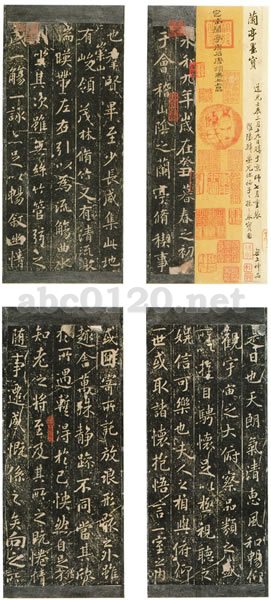 蘭亭墨寶
永和九年歲在癸丑暮春之初
于會稽山陰之蘭亭脩稧事
也羣賢畢至少長咸集此地
有崇山峻領茂林脩竹又有清流激
湍暎帶左右引以為流觴曲水
列坐其次雖無絲竹管弦之
盛一觴一詠亦足以暢叙幽情
是日也天朗氣清惠風和暢仰
觀宇宙之大俯察品類之盛
所以遊目騁懷足以極視聽之
娛信可樂也夫人之相與俯仰
一世或取諸懷抱悟言一室之內
或因寄所託放浪形骸之外雖
趣舍萬殊靜躁不同當其欣
於所遇蹔得於己怏然自足不
知老之將至及其所之既惓情
隨事遷感慨係之矣向之所
abc0120.net